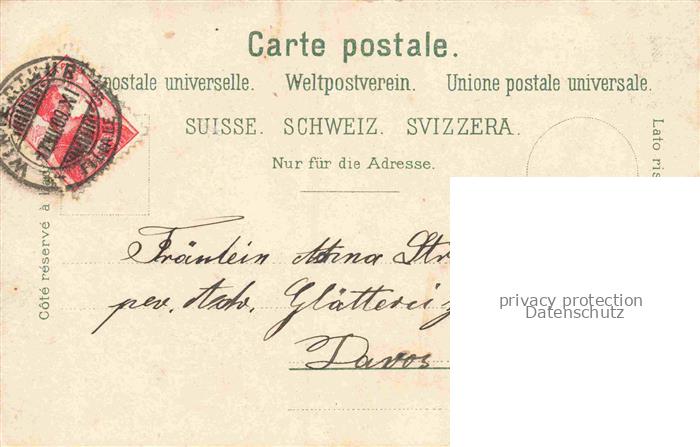 Carte postale.
postale universelle. Weltpostverein. Unione postale universale.
SUISSE. SCHWEIZ. SVIZZERA.
Nur für die Adresse.
Côté réservé à
Lato ris
Fräulein Anna Str
per. Adr. Glätterei
Davos
privacy protection
Datenschutz